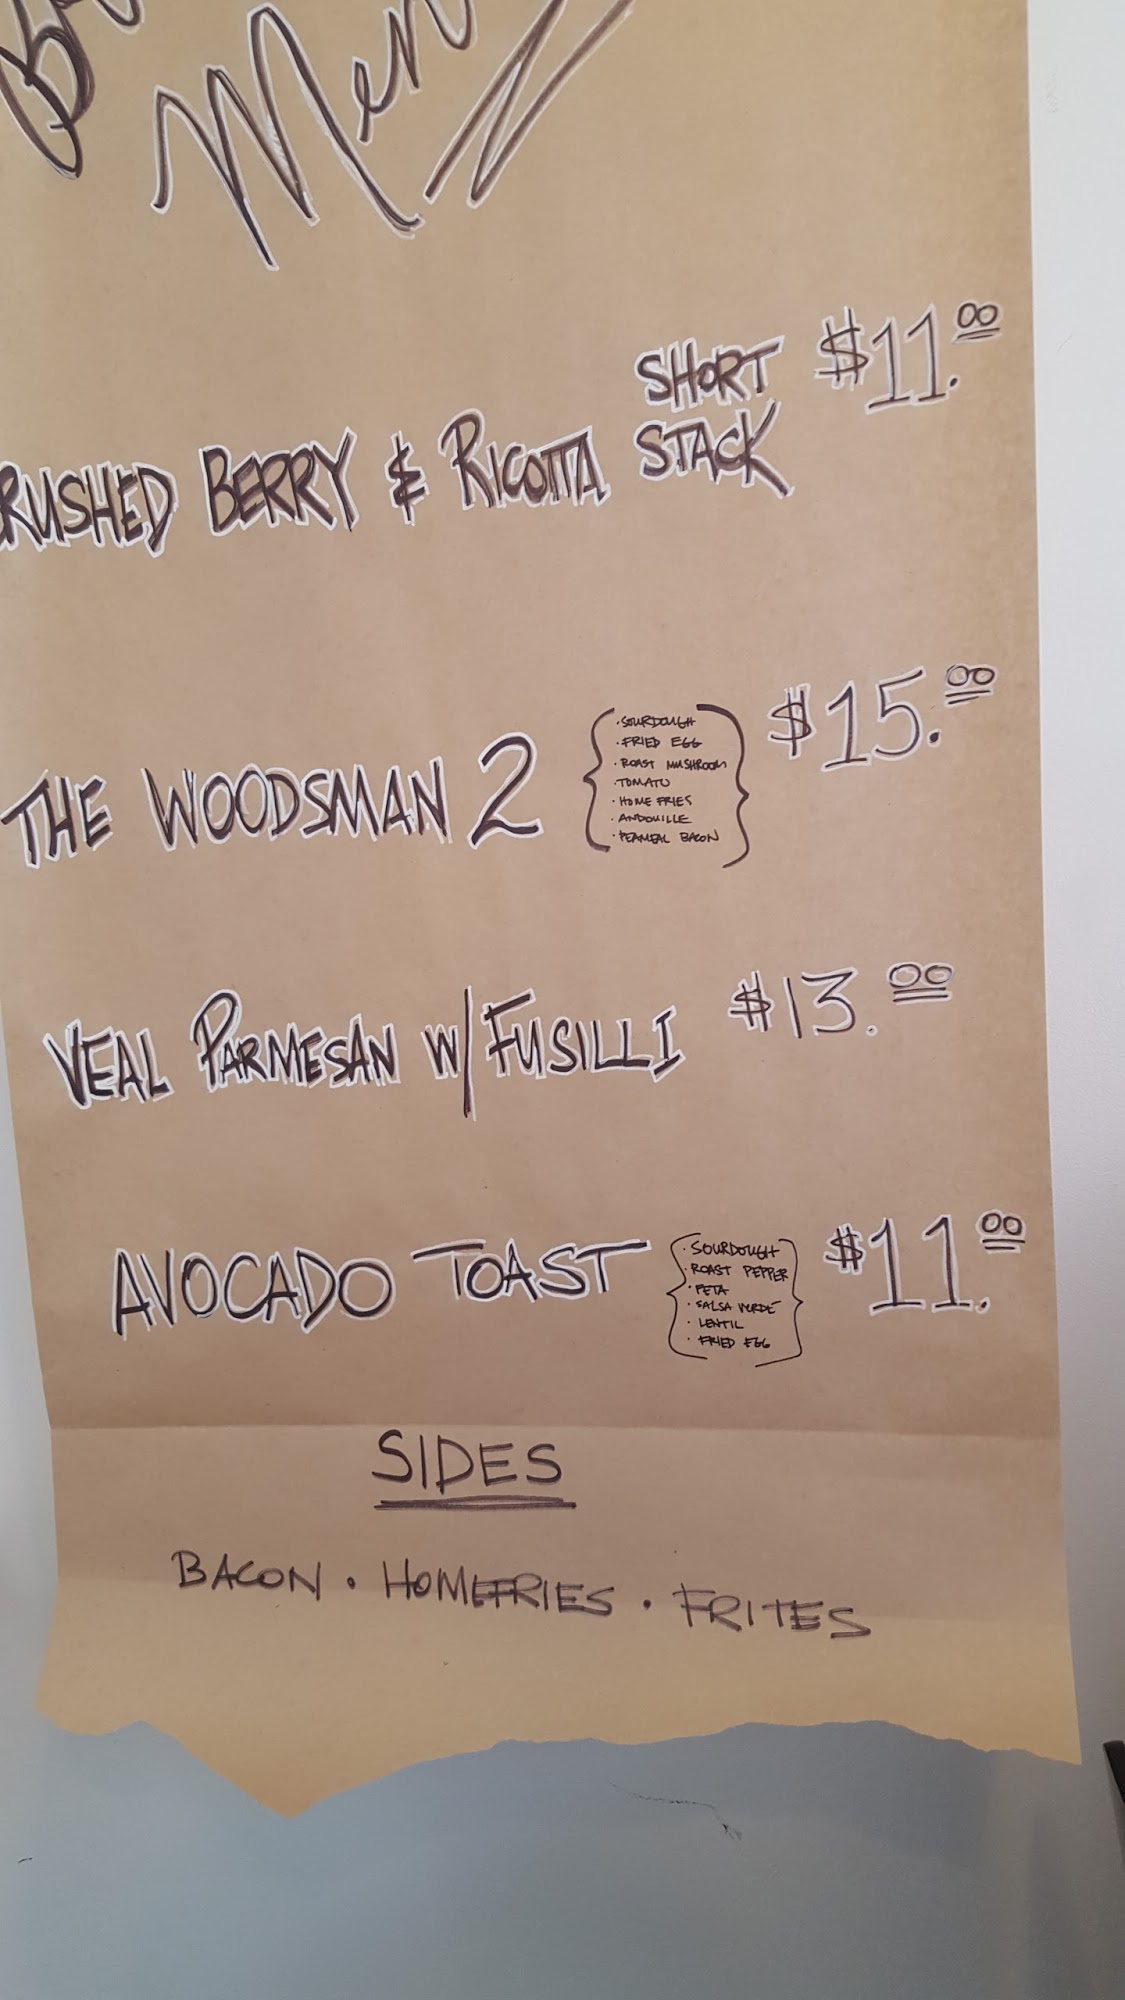 Menu
SHORT $11.00
CRUSHED BERRY & RICOTTA STACK
THE WOODSMAN 2
· SOURDOUGH
· FRIED EGG
· ROAST MUSHROOM
· TOMATO
· HOME FRIES
· ANDOUILLE
· PEAMEAL BACON
$15.00
VEAL PARMESAN W/ FUSILLI $13.00
AVOCADO TOAST
· SOURDOUGH
· ROAST PEPPER
· FETA
· SALSA VERDE
· LENTIL
· FRIED EGG
$11.00
SIDES
BACON · HOMEFRIES · FRITES